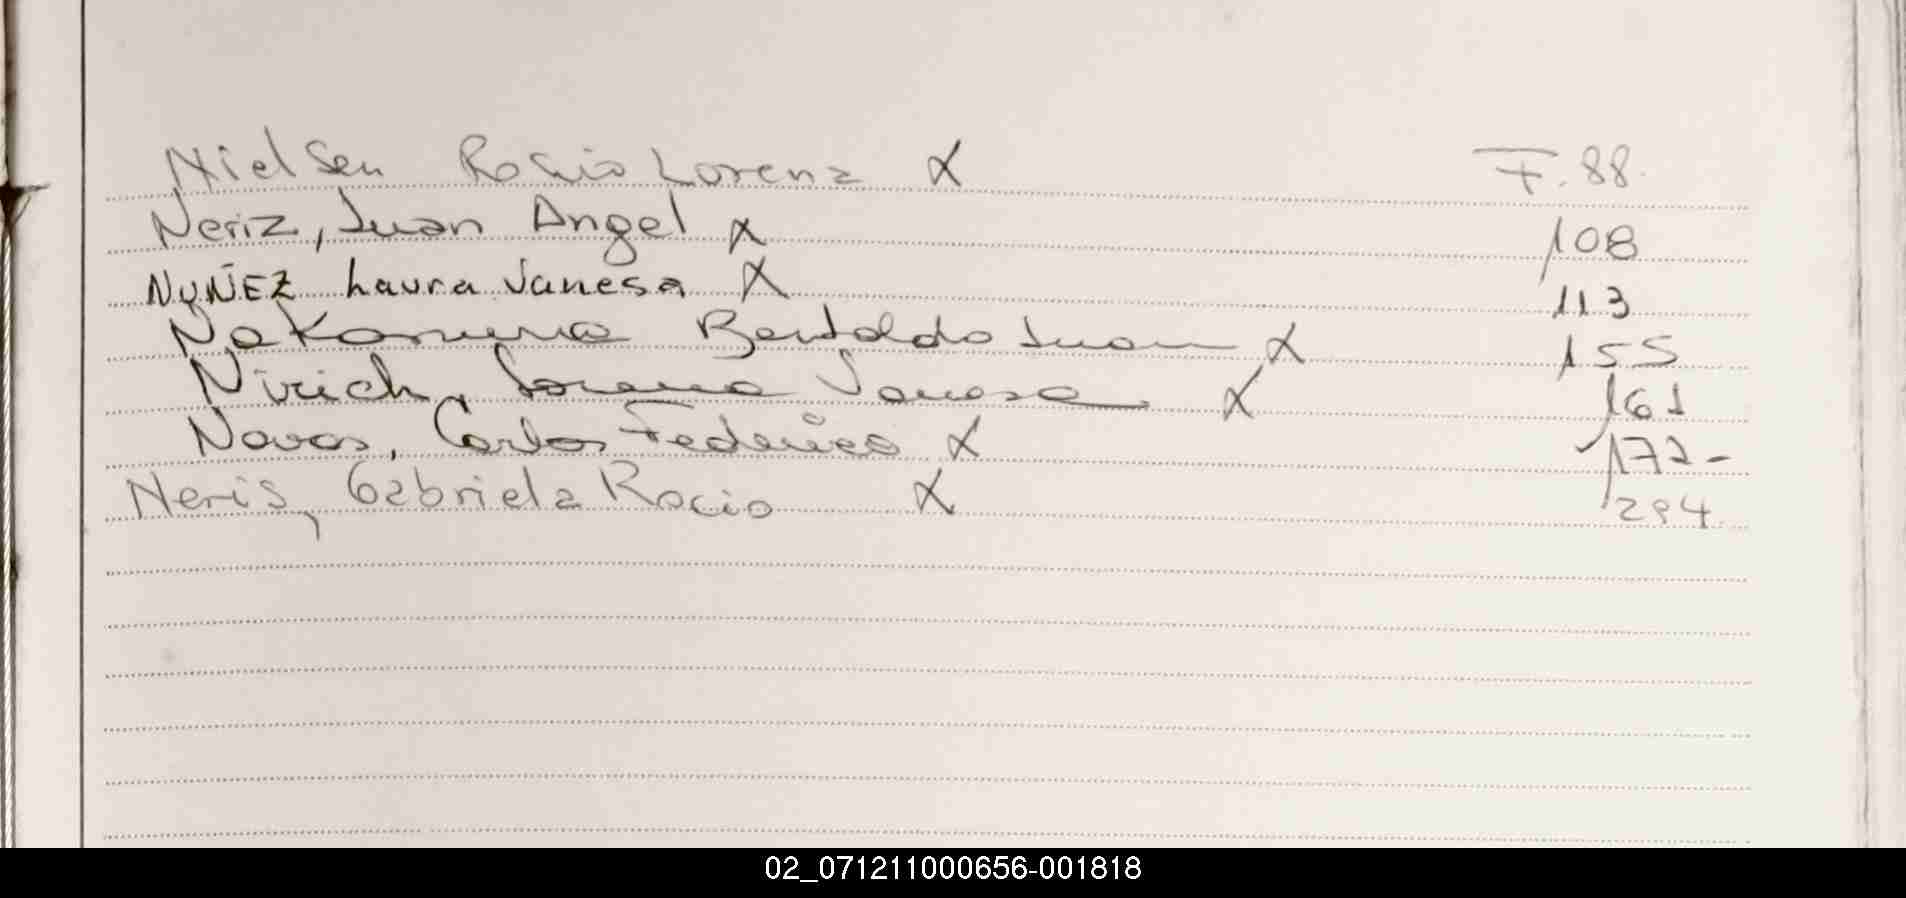 Nielsen Rocio Lorena X F. 88.
Neriz, Juan Angel X 108
NUÑEZ Laura Vanesa X 113
Nakamura Bertoldo Juan X 155
Nirich, Lorena Vanesa X 161
Navas, Carlos Federico X 172-
Neris, Gabriela Rocio X 294
02_071211000656-001818